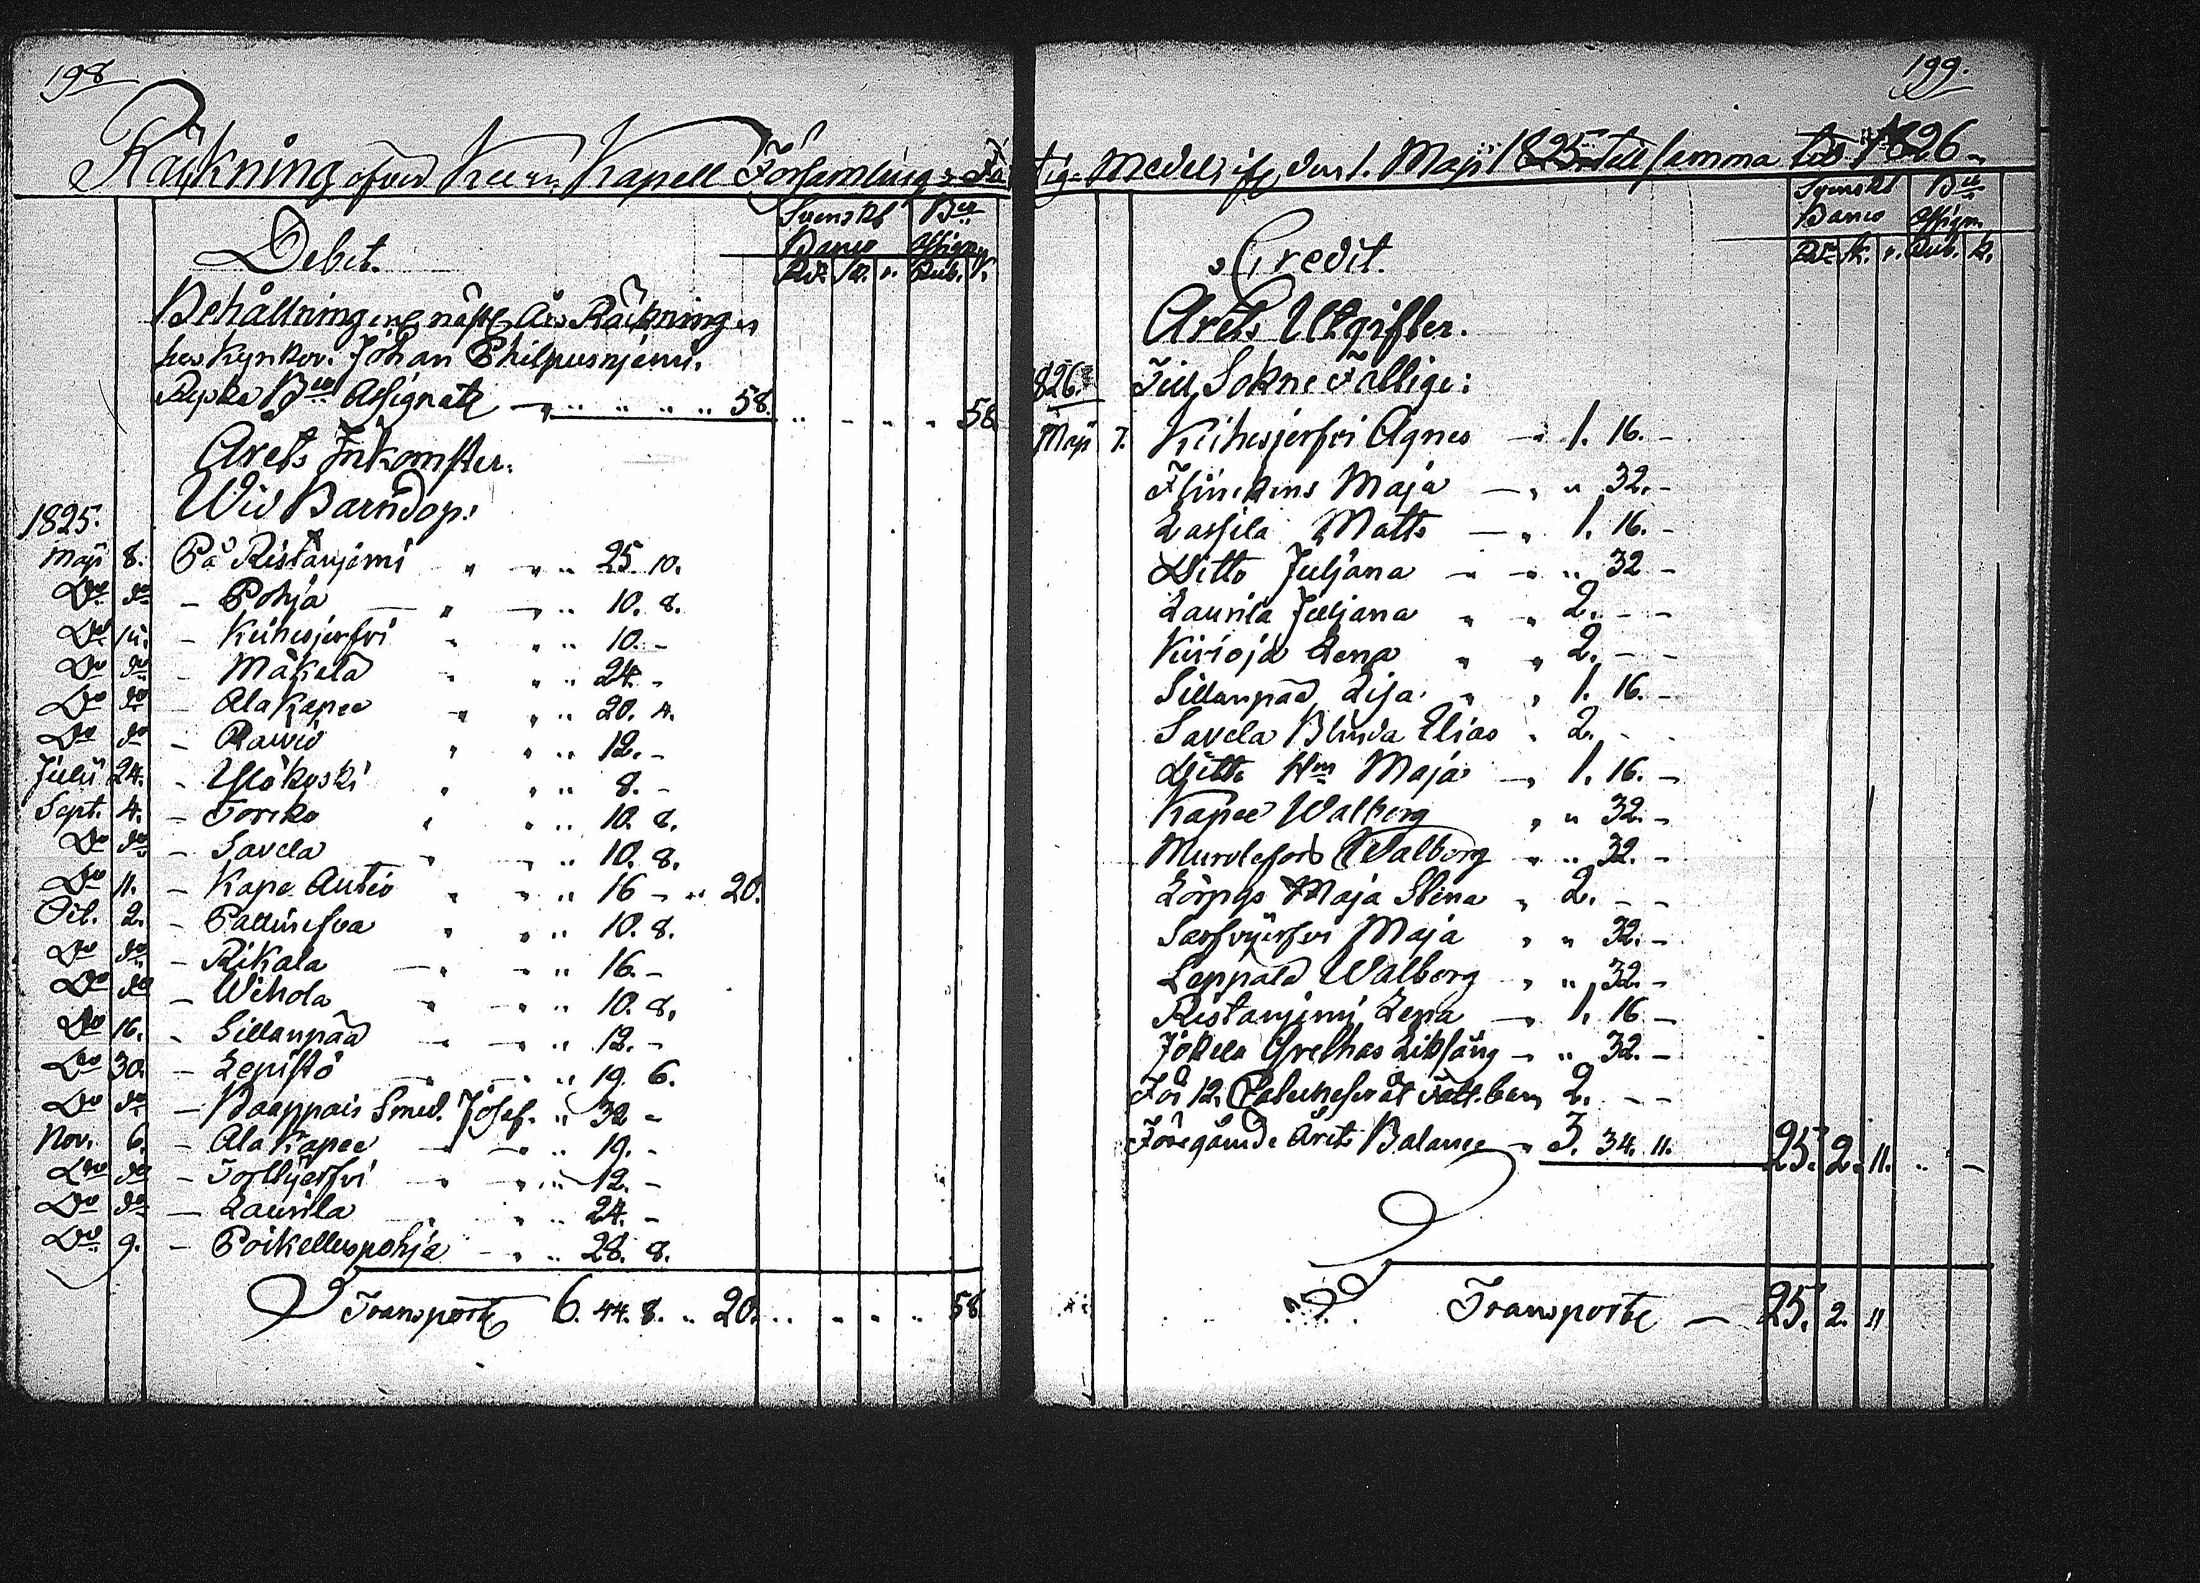 198
Räkning öfver Kemi Kapell Församlings Fa
Debet.
Svenskt Bco
Banco Assign.
Rd. sk. r. Rub. k.
Behållning enl. näst. Års Räkning
hos Kyrkov. Johan Philpusnjemi.
Ryska Bco Assignat. 58. 58
Årets Inkomster.
1825. Wid Barndop:
Maji 8. På Ristanjemi 25. 10.
Do do - Pohja 10. 8.
Do - Kiihesjerfvi 10. -
Do do - Mäkelä 24. -
Do do - Ala Kapee 20. 4.
Do do - Rawio 12. -
Julii 24. - Yliökoski 8. -
Sept. 4. - Torikо 10. 8.
Do do - Savela 10. 8.
Do 11. - Kape Autio 16 - 20.
Oct. 2. - Pallinefva 10. 8.
Do do - Rikala 16. -
Do do - Wihola 10. 8.
Do 16. - Sillanpää 12. -
Do 30. - Lepistö 19. 6.
Do do - Paappais Smed. Josef. 32 -
Nov. 6. - Ala Kapee 19. -
Do do - Torkkjerfvi 12. -
Do do - Laurila 24. -
Do 9. - Poikelluspohja 28. 8.
Transporte 6. 44. 8. 20. 58
199.
tig Medel, ifr. den 1. Maji 1825 till samma tid 1826
Credit.
Svenskt Bco
Banco Assign.
Rd. sk. r. Rub. k.
Årets Utgifter.
1826. Till Sokne Fattige:
Maji 7. Kiihesjerfvi Agnes 1. 16. -
Flinckens Maja 32. -
Lassila Matts 1. 16. -
Ditto Juljana 32 -
Laurila Juljana 2. - -
Kivioja Lena 2. - -
Sillanpää Lisa 1. 16. -
Savela Blinda Elias 2. - -
Ditto Hm Maja 1. 16. -
Kapee Walborg 32. -
Walborg 32. -
Maja Stina 2. - -
Sarfvijerfvi Maja 32. -
Leppälä Walborg 32. -
Ristanjemi Lena 1. 16 -
Jokela Grethas Liksång 32. -
För 12. åt fatt. barn 2. - -
Föregående Årets Balance 3. 34. 11. 25. 2. 11.
Transporte 25. 2. 11